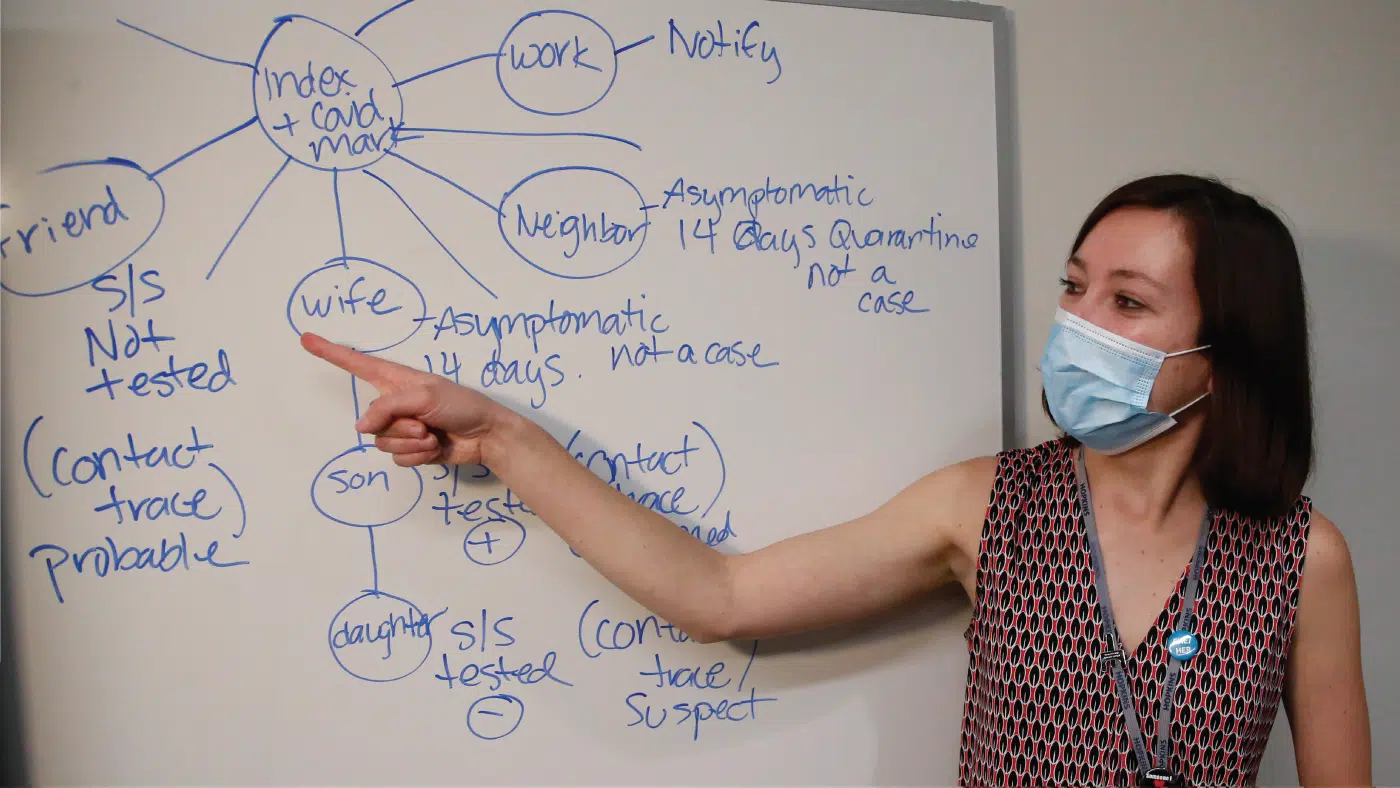 Index
+ covid
mark
work
Notify
Friend
S/S
Not
tested
(contact
trace)
probable
Neighbor
Asymptomatic
14 days Quarantine
not a
case
wife
Asymptomatic
14 days. not a case
son
S/S
tested
+
(contact
trace/
daughter
S/S
tested
-
trace/
Suspect
HOPKINS
HOPKINS
HOPKINS
HER